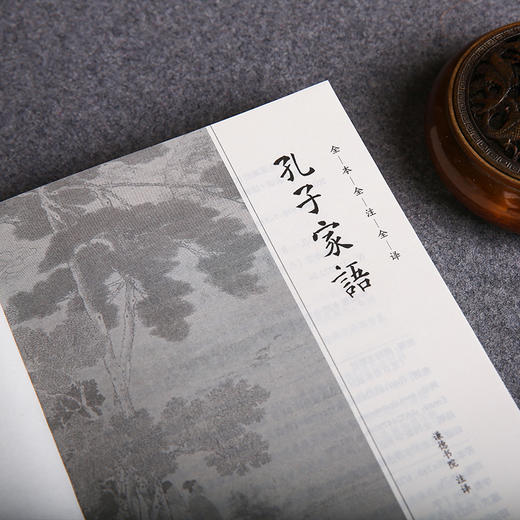 全本全注全译
孔子家語
谦德书院 注译